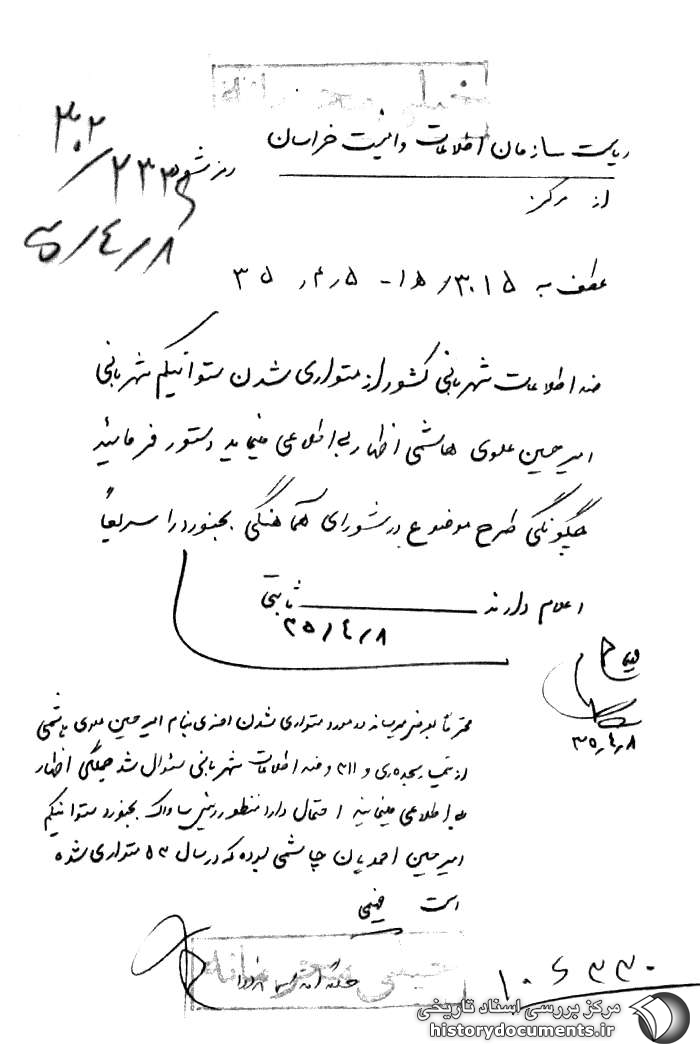 خیلی محرمانه
ریاست سازمان اطلاعات و امنیت خراسان
۳۰۲/۲۳۳ رمز شود
از مرکز
۳۵/۴/۸
عطف به ۳۰۱۵/ - ۳۵٫۴٫۵
ضد اطلاعات شهربانی کشور از متواری شدن ستوانیکم شهربانی
امیرحسین علوی هاشمی اظهار بی اطلاعی مینماید دستور فرمائید
چگونگی طرح موضوع در شورای هماهنگی بجنورد را سریعاً
اعلام دارند ثابتی
۳۵/۴/۸
۳۵٫۴٫۸
محترماً بعرض میرساند در مورد متواری شدن افسری بنام امیرحسین علوی هاشمی
از کمیته و ۳۱۱ و ضد اطلاعات شهربانی سئوال شد همگی اظهار
بی اطلاعی مینمایند احتمال دارد منظور رئیس ساواک بجنورد ستوانیکم
امیرحسین احمدیان چاشمی بوده که در سال ۵۳ متواری شده
است
خیلی محرمانه
مرکز بررسی اسناد تاریخی
historydocuments.ir